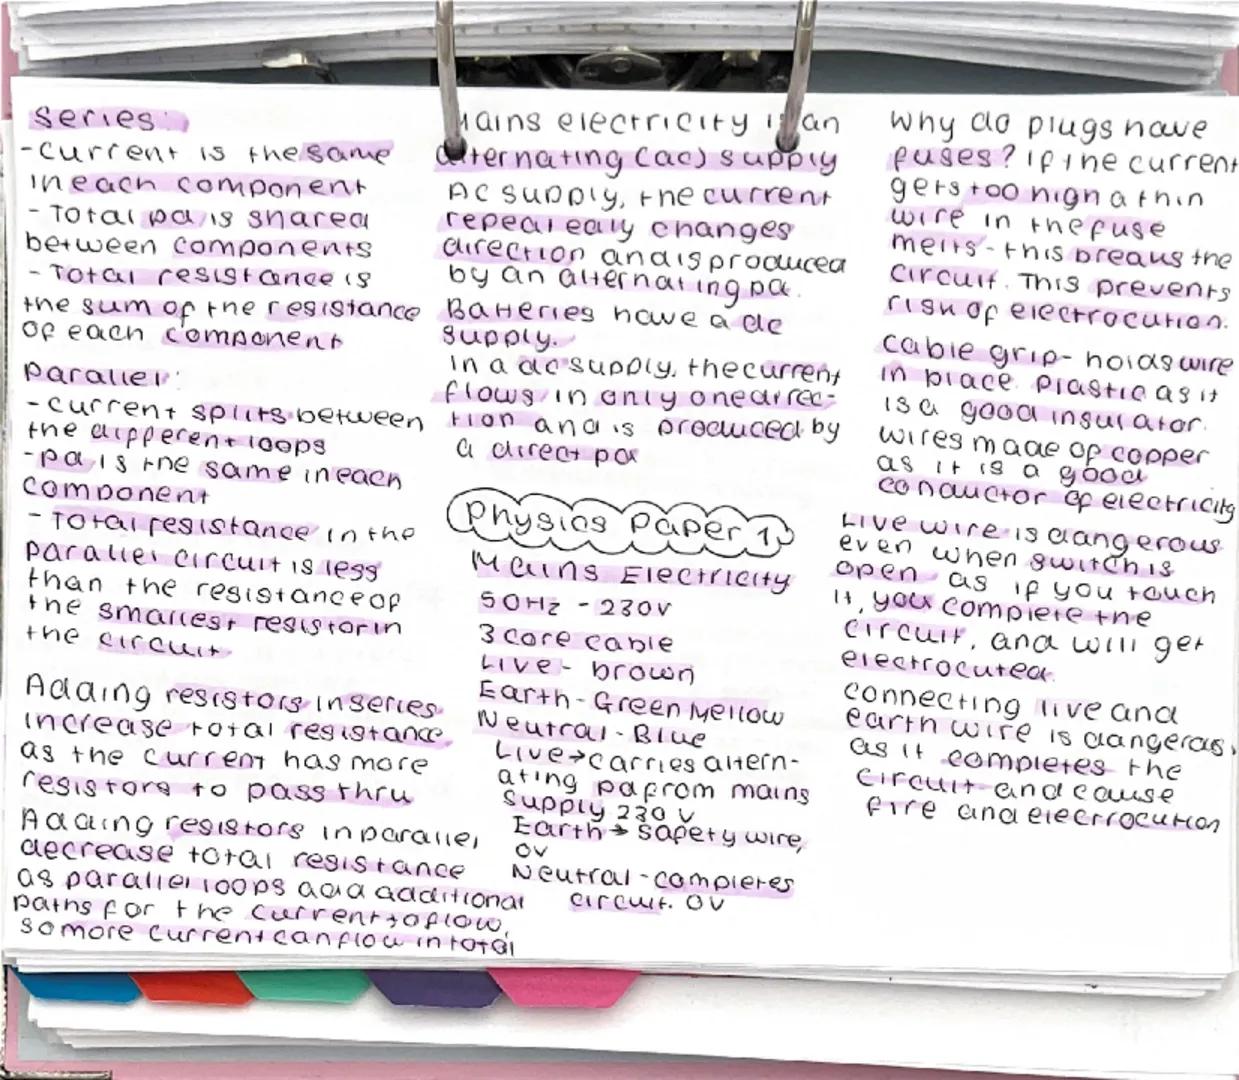 series:
- current is the same
in each component
- Total pd is shared
between components
- Total resistance is
the sum of the resistance
of each component
parallel:
- current splits between
the different loops
- pd is the same in each
component
- Total resistance in the
parallel circuit is less
than the resistance of
the smallest resistor in
the circuit
Adding resistors in series
increase total resistance
as the current has more
resistors to pass thru
Adding resistors in parallel
decrease total resistance
as parallel loops add additional
paths for the current to flow,
so more current can flow in total
Mains electricity is an
alternating (ac) supply
AC supply, the current
repeatedly changes
direction and is produced
by an alternating pd.
Batteries have a dc
supply.
In a dc supply, the current
flows in only one direc-
tion and is produced by
a direct pd
Physics Paper 1
Mains Electricity
50Hz - 230v
3 core cable
Live - brown
Earth - Green Mellow
Neutral - Blue
Live → carries altern-
ating pd from mains
supply 230 v
Earth → safety wire,
0v
Neutral - completes
circuit. 0v
Why do plugs have
fuses? If the current
gets too high a thin
wire in the fuse
melts - this breaks the
circuit. This prevents
risk of electrocution.
cable grip - holds wire
in place. Plastic as it
is a good insulator.
wires made of copper
as it is a good
conductor of electricity
Live wire is dangerous
even when switch is
open as if you touch
it, you complete the
circuit, and will get
electrocuted.
connecting live and
earth wire is dangerous,
as it completes the
circuit and cause
fire and electrocution